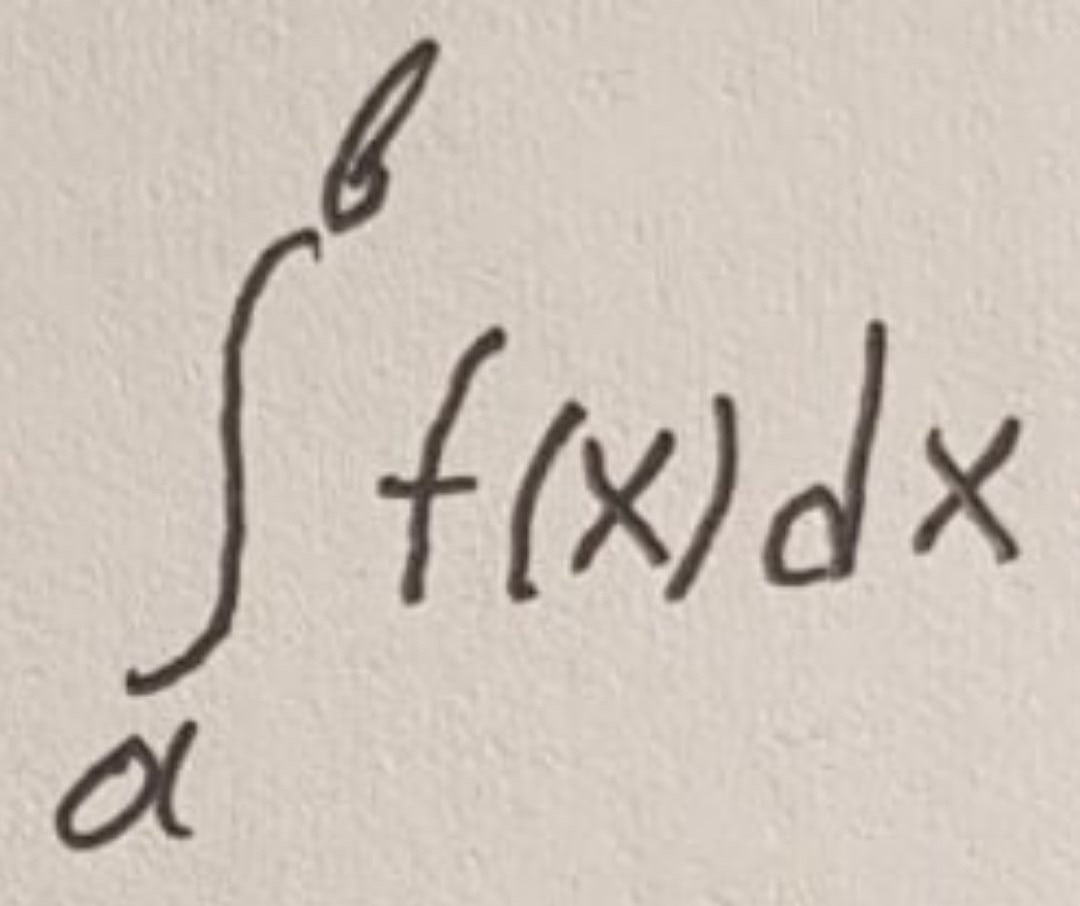 ∫_a^b f(x)dx